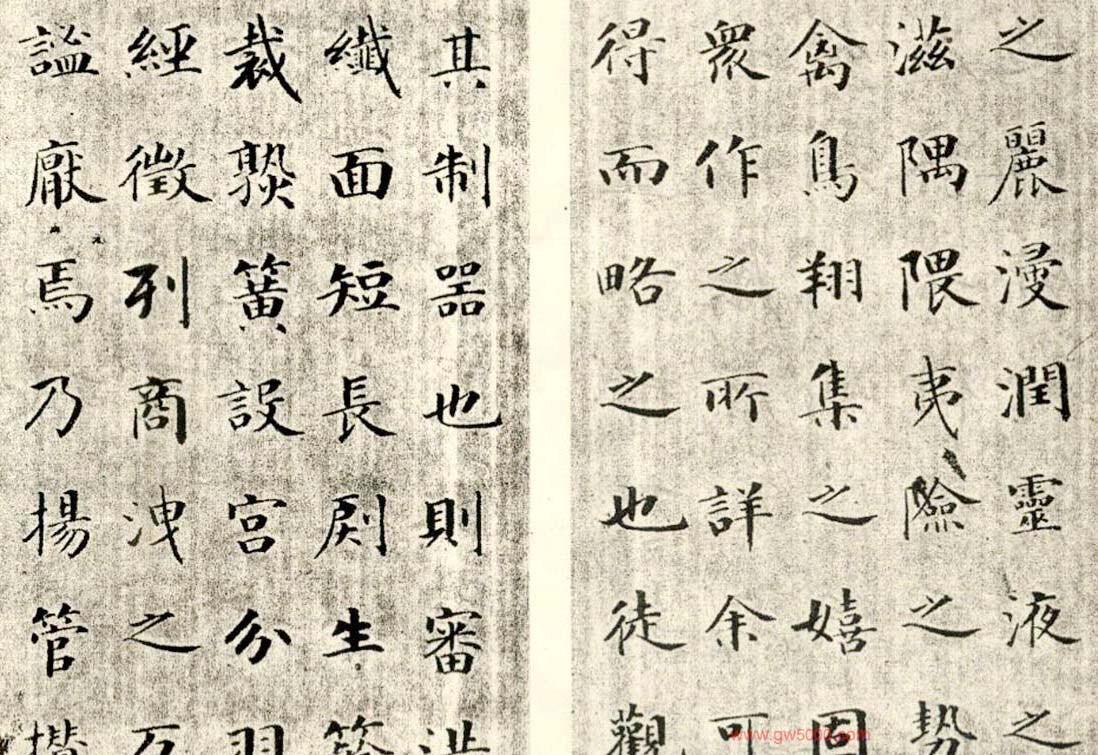 之麗漫潤靈液之
滋隅隈夷險之勢
禽鳥翔集之嬉固
衆作之所詳余可
得而略之也徒觀
其制器也則審洪
纖面短長生
裁熟簧設宮分羽
經徵列商洩之
謐厭焉乃揚管攢
www.gw5000.com